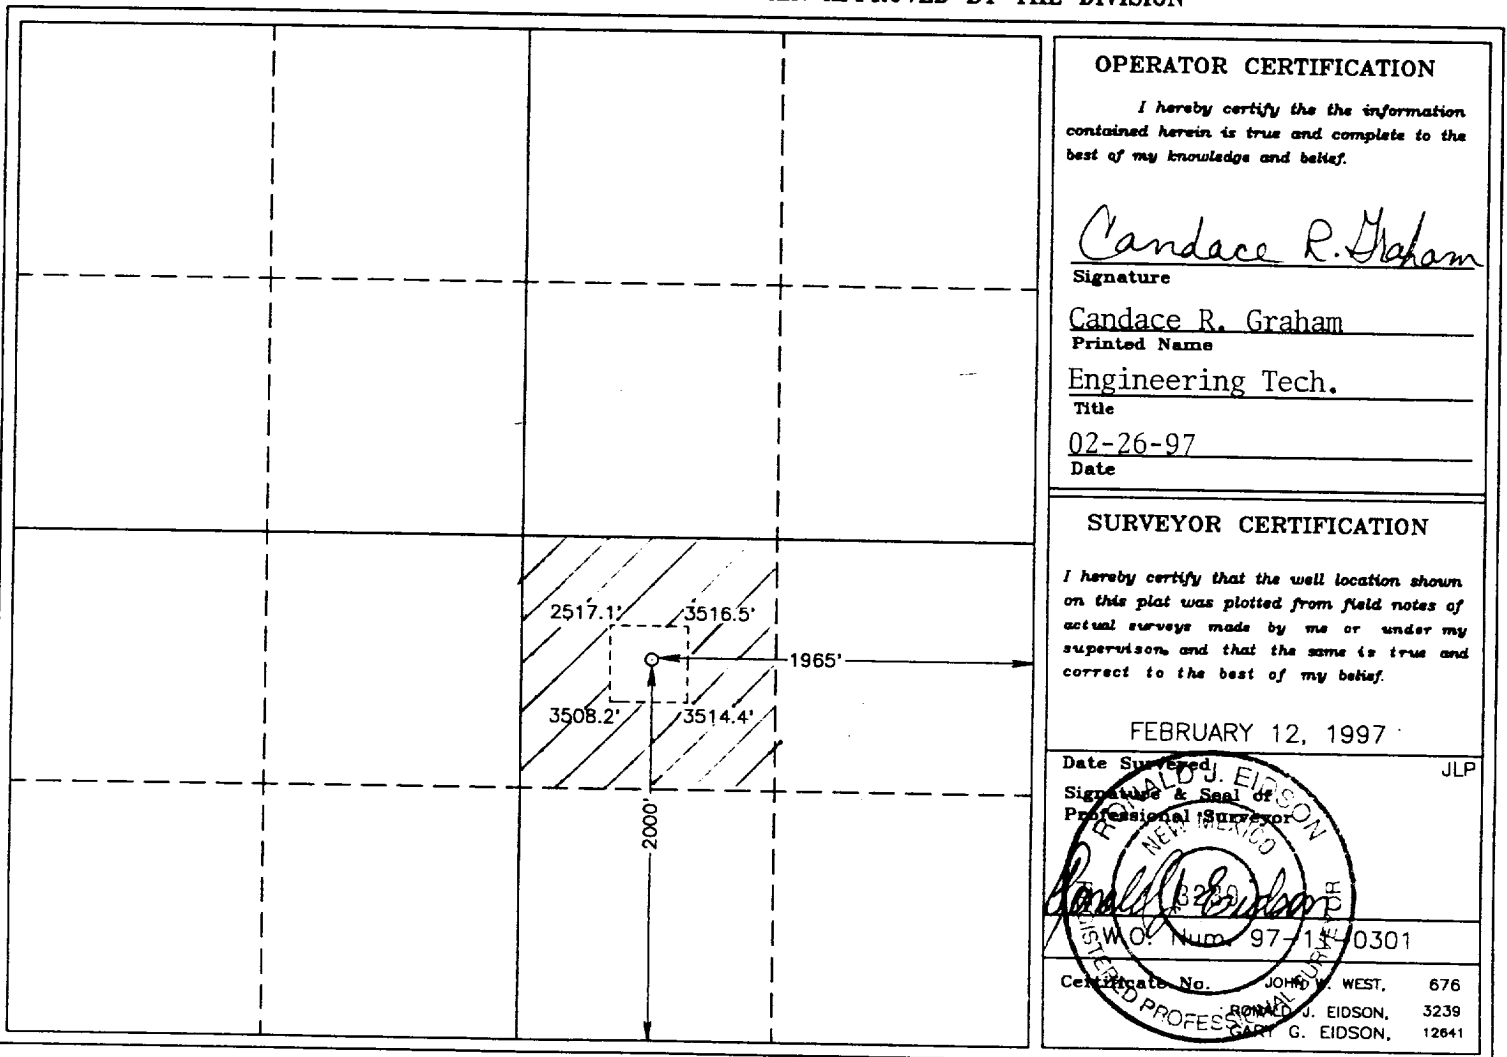 APPROVED BY THE DIVISION
2517.1'
3516.5'
1965'
3508.2'
3514.4'
2000'
OPERATOR CERTIFICATION
I hereby certify the the information
contained herein is true and complete to the
best of my knowledge and belief.
Candace R. Graham
Signature
Candace R. Graham
Printed Name
Engineering Tech.
Title
02-26-97
Date
SURVEYOR CERTIFICATION
I hereby certify that the well location shown
on this plat was plotted from field notes of
actual surveys made by me or under my
supervison, and that the same is true and
correct to the best of my belief.
FEBRUARY 12, 1997
Date Surveyed
JLP
Signature & Seal of
Professional Surveyor
RONALD J. EIDSON
NEW MEXICO
3239
REGISTERED PROFESSIONAL SURVEYOR
Ronald J. Eidson
W.O. Num. 97-11-0301
Certificate No. JOHN W. WEST, 676
RONALD J. EIDSON, 3239
GARY G. EIDSON, 12641